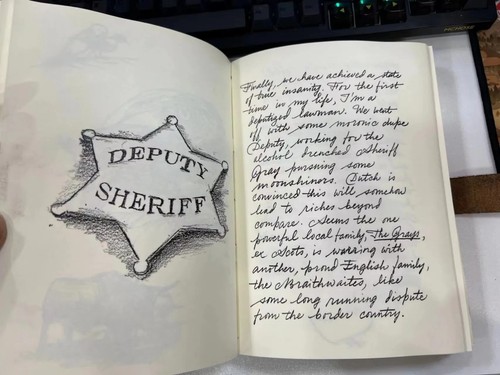 DEPUTY
SHERIFF
Finally, we have achieved a state
of true insanity. For the first
time in my life, I'm a
deputized lawman. We went
off with some moronic dupe
Deputy, working for the
alcohol drenched Sheriff
Gray pursuing some
moonshiners. Dutch is
convinced this will somehow
lead to riches beyond
compare. Seems the one
powerful local family, The Grays,
ex Scots, is warring with
another, proud English family,
the Braithwaites, like
some long running dispute
from the border country.